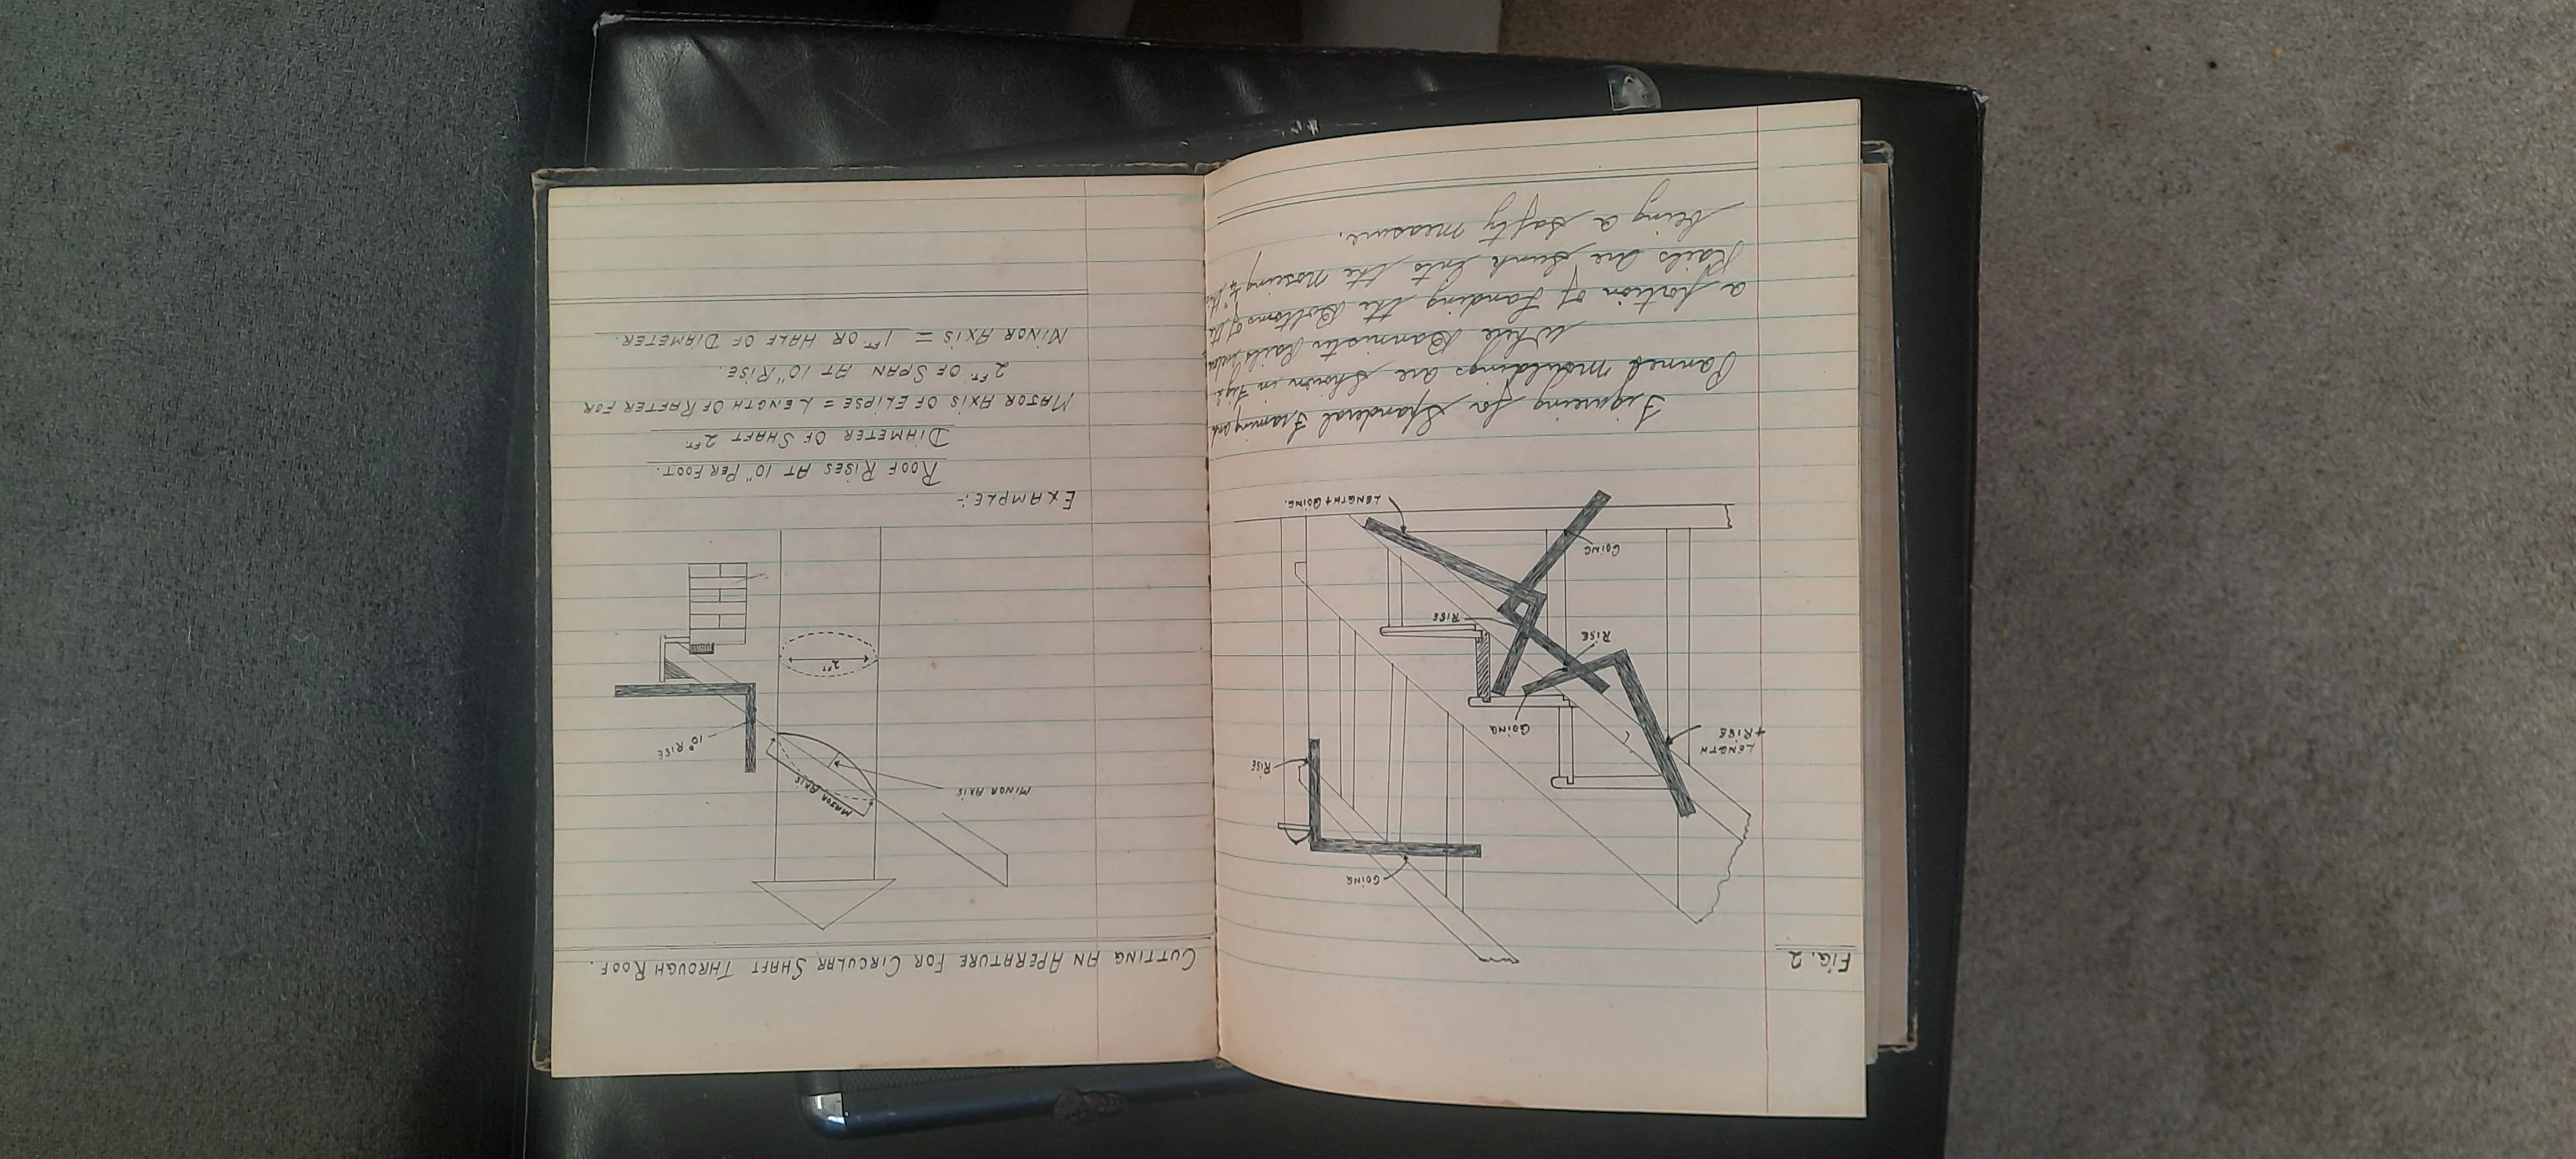 FIG. 2
GOING
RISE
LENGTH
+ RISE
GOING
RISE
RISE
GOING
LENGTH + GOING.
Figureing for Spanderal Framing and
Pannel mouldings are Shown in Fig 2
While Bannister Rails
a portion of Landing the Bottoms of the
Rails are sunk into the nosing ¼" this
being a safty measure.
CUTTING AN APERATURE FOR CIRCULAR SHAFT THROUGH ROOF.
MINOR AXIS
MAJOR AXIS
10" RISE
2 FT
EXAMPLE:-
ROOF RISES AT 10" PER FOOT.
DIAMETER OF SHAFT 2 FT
MAJOR AXIS OF ELIPSE = LENGTH OF RAFTER FOR
2 FT OF SPAN AT 10" RISE.
MINOR AXIS = 1 FT OR HALF OF DIAMETER.